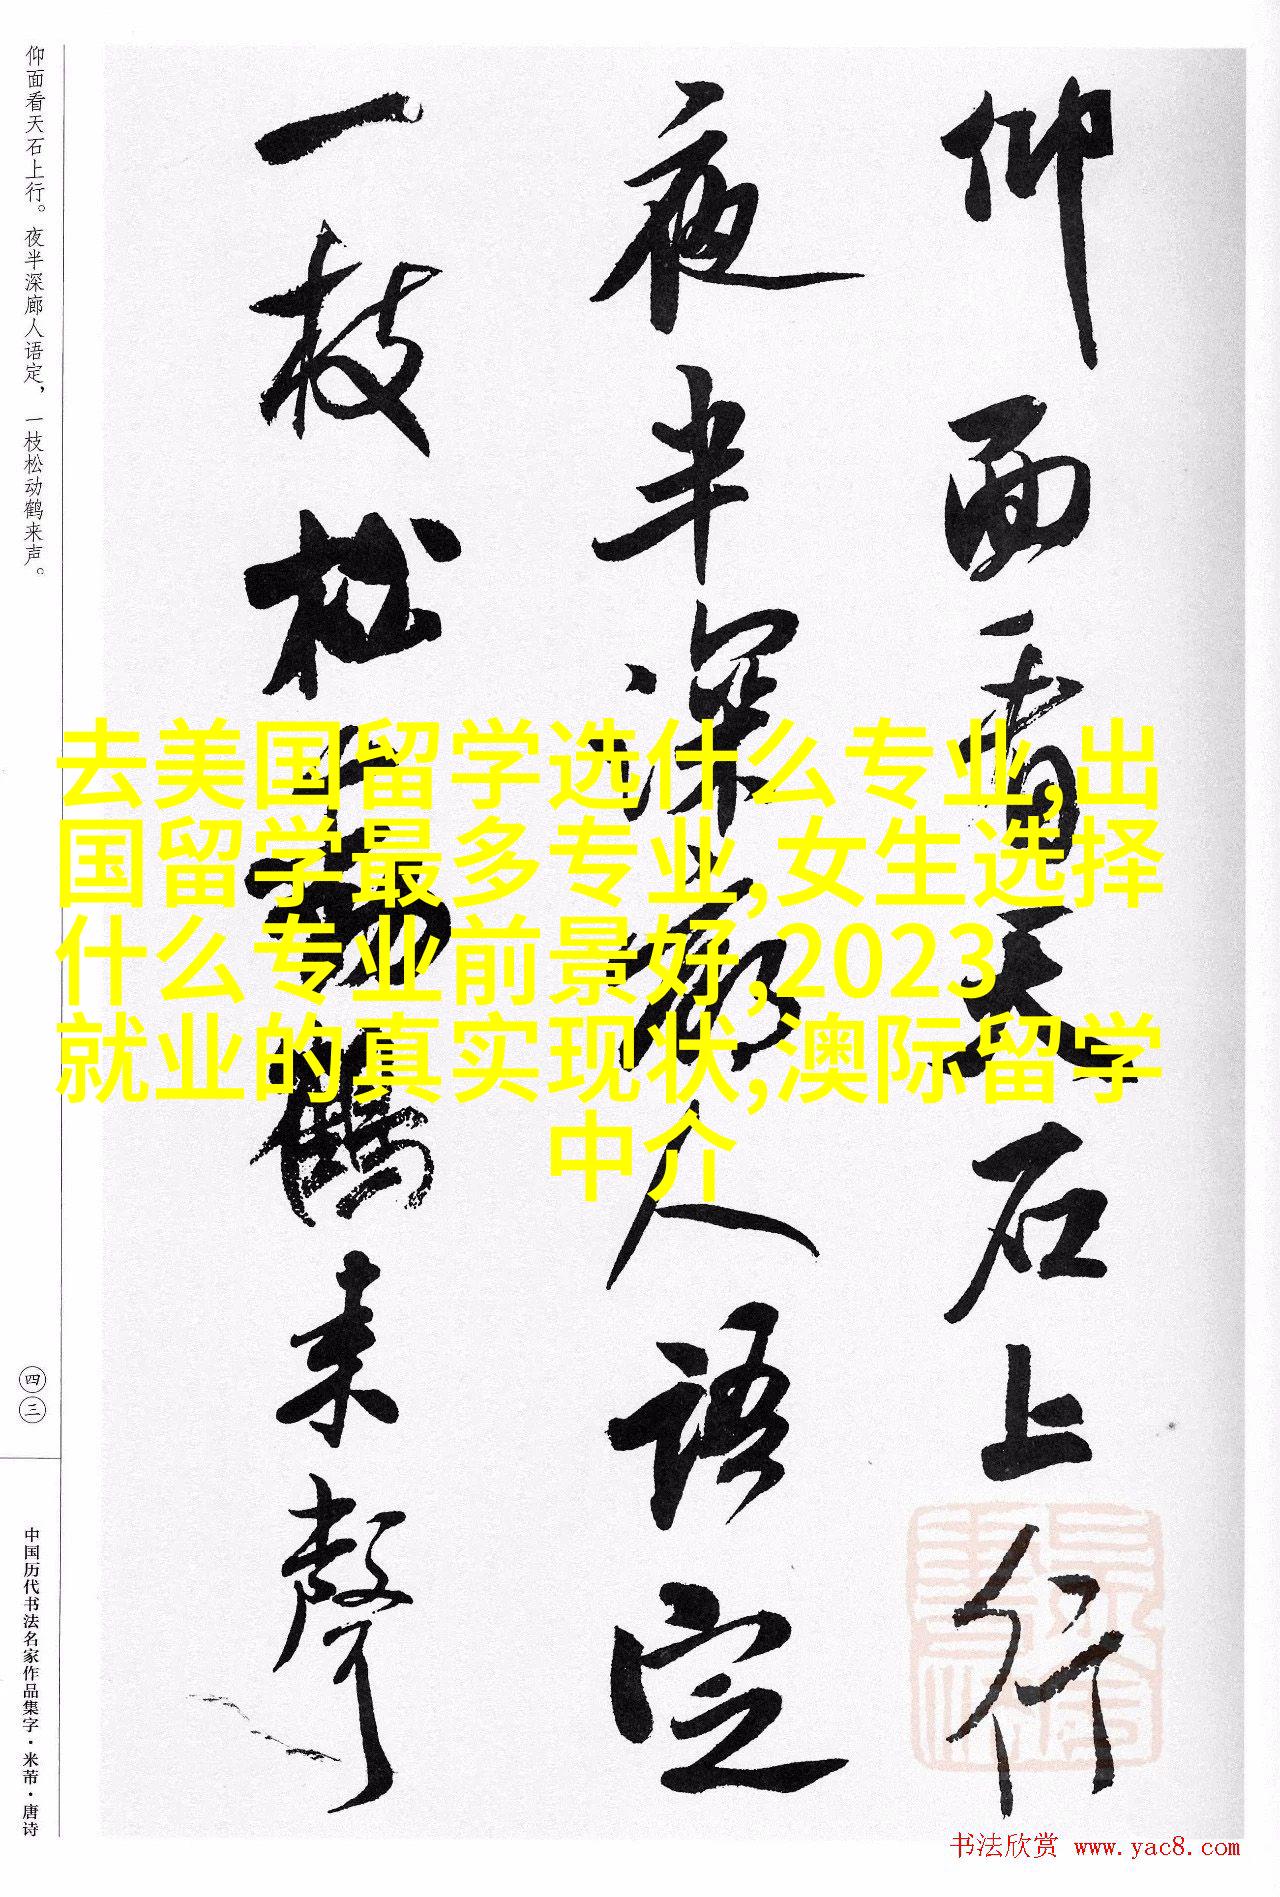 仰面看天石上行。夜半深廊人语定，一枝松动鹤来声。
仰面看天石上行
夜半深廊人語定
一枝松動鶴来聲
去美国留学选什么专业,出
国留学最多专业,女生选择
什么专业前景好,2023
就业的真实现状,澳际留学
中介
四三
中国历代书法名家作品集字·米芾·唐诗
书法欣赏 www.yac8.com